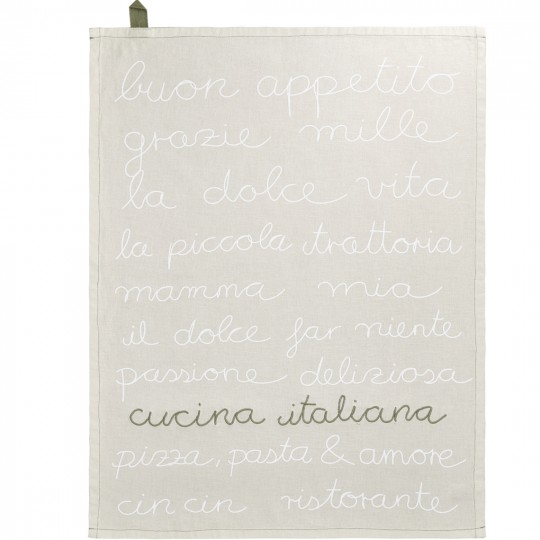 buon appetito
grazie mille
la dolce vita
la piccola trattoria
mamma mia
il dolce far niente
passione deliziosa
cucina italiana
pizza, pasta & amore
cin cin ristorante